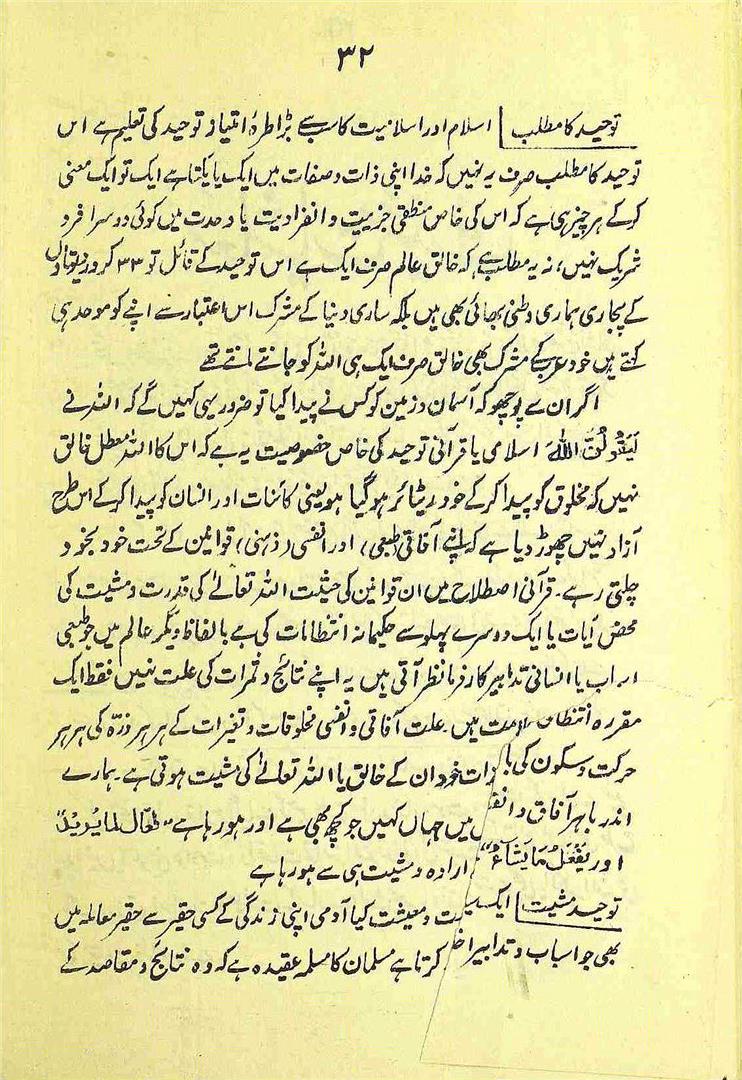 ۳۲
توحید کا مطلب | اسلام اور اسلامیت کا سب سے بڑا طرۂ امتیاز توحید کی تعلیم ہے اس
توحید کا مطلب صرف یہ نہیں کہ خدا اپنی ذات و صفات میں ایک یا یکتا ہے ایک تو ایک معنی
کر کے ہر چیز ہی ہے کہ اس کی خاص منطقی جزییت و انفرادیت یا وحدت میں کوئی دوسرا فرد
شریک نہیں، نہ یہ مطلب ہے کہ خالق عالم صرف ایک ہے اس توحید کے قائل تو ۳۳ کرور دیوتاؤں
کے پجاری ہماری وطنی بھائی بھی ہیں بلکہ ساری دنیا کے مشرک اس اعتبار سے اپنے کو موحد ہی
کہتے ہیں خود عرب کے مشرک بھی خالق صرف ایک ہی اللہ کو جانتے مانتے تھے
اگر ان سے پوچھو کہ آسمان و زمین کو کس نے پیدا کیا تو ضرور یہی کہیں گے کہ اللہ نے
لَیَقُوْلُنَّ اللّٰہُ اسلامی یا قرآنی توحید کی خاص خصوصیت یہ ہے کہ اس کا اللہ معطل خالق
نہیں کہ مخلوق کو پیدا کر کے خود ریٹائر ہو گیا ہو یعنی کائنات اور انسان کو پیدا کر کے اس طرح
آزاد نہیں چھوڑ دیا ہے کہ اپنے آفاقی (طبعی) اور انفسی (ذہنی) قوانین کے تحت خود بخود
چلتی رہے۔ قرآنی اصطلاح میں ان قوانین کی حیثیت اللہ تعالےٰ کی قدرت و مشیت کی
محض آیات یا ایک دوسرے پہلو سے حکیمانہ انتظامات کی ہے بالفاظ دیگر عالم میں جو طبعی
اسباب یا انسانی تدابیر کار فرما نظر آتی ہیں یہ اپنے نتائج و ثمرات کی علت نہیں فقط ایک
مقررہ انتظامی علامت ہیں۔ علت آفاقی و انفسی مخلوقات و تغیرات کے ہر ہر ذرہ کی ہر ہر
حرکت و سکون کی بالذات خود ان کے خالق یا اللہ تعالےٰ کی مشیت ہوتی ہے۔ ہمارے
اندر باہر آفاق و انفس میں جہاں کہیں جو کچھ بھی ہے اور ہو رہا ہے "فَعَّالٌ لِّمَا یُرِیْدُ"
اور یَفْعَلُ مَا یَشَآءُ" ارادہ و مشیت ہی سے ہو رہا ہے
توحید مشیت | و معیشت کیا آدمی اپنی زندگی کے کسی حقیر سے حقیر معاملہ میں
بھی جو اسباب و تدابیر کرتا ہے مسلمان کا مسلمہ عقیدہ ہے کہ وہ نتائج و مقاصد کے